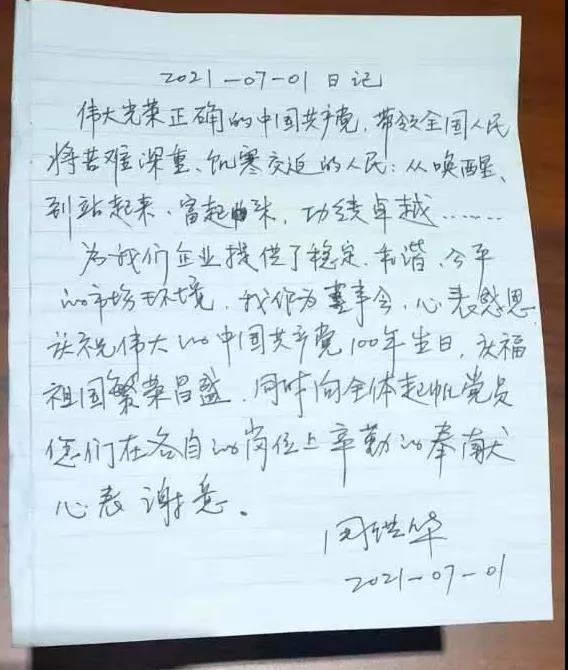 2021-07-01日记
伟大光荣正确的中国共产党,带领全国人民
将苦难深重、饥寒交迫的人民:从唤醒、
到站起来、富起来,功绩卓越……
为我们企业提供了稳定、和谐、公平
的市场环境,我作为董事会,心表感恩
庆祝伟大的中国共产党100年生日,庆福
祖国繁荣昌盛,同时向全体起帆党员
您们在各自的岗位上辛勤的奉献
心表谢意。
周华
2021-07-01